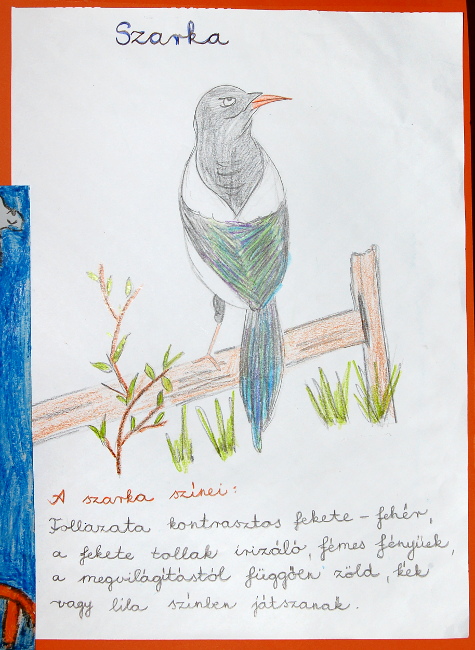 Szarka
A szarka színei:
Tollazata kontrasztos fekete - fehér,
a fekete tollak irizáló, fémes fényűek,
a megvilágítástól függően zöld, kék
vagy lila színben játszanak.